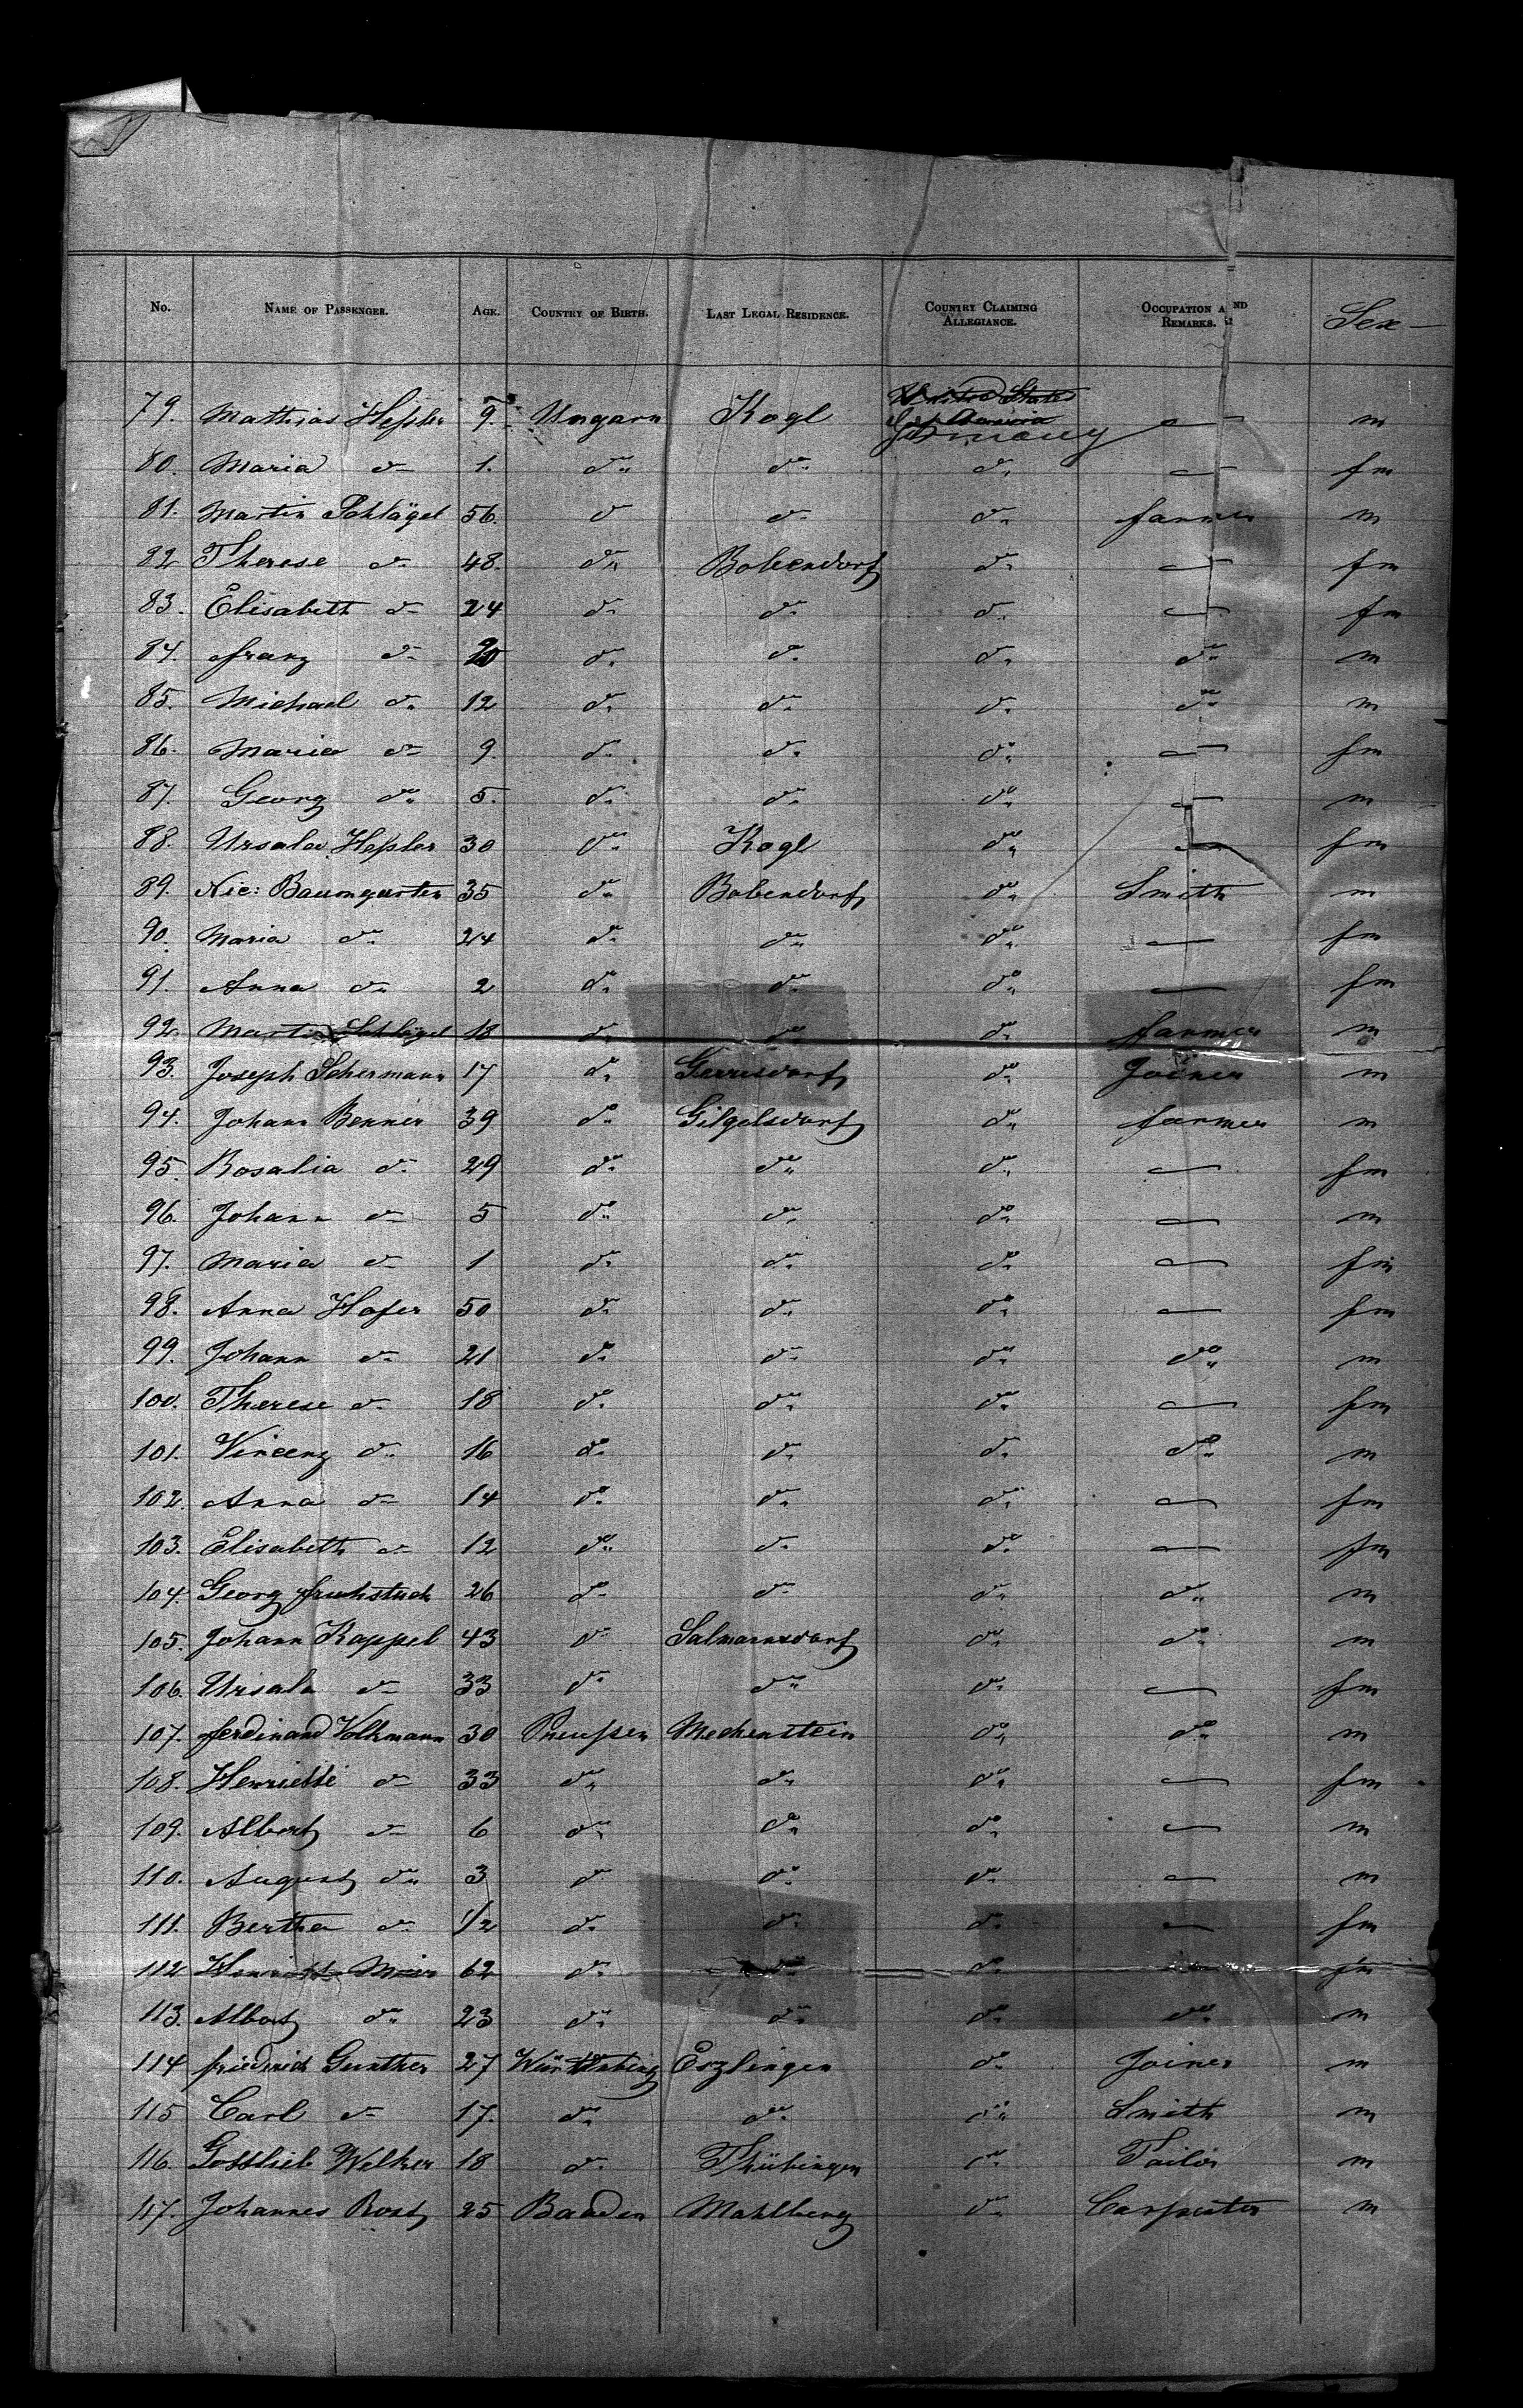 No. NAME OF PASSENGER. AGE. COUNTRY OF BIRTH. LAST LEGAL RESIDENCE. COUNTRY CLAIMING ALLEGIANCE. OCCUPATION AND REMARKS. Sex
United States
79. Mathias Heßler 9. Ungarn Kogl Germany — m
80. Maria do 1. do do do — fm
81. Martin Schlägel 56. do do do farmer m
82 Therese do 48. do Bobendorf do — fm
83. Elisabeth do 24 do do do — fm
84. Franz do 20 do do do do m
85. Michael do 12 do do do do m
86. Maria do 9. do do do — fm
87. Georg do 5. do do do — m
88. Ursala Heßler 30 do Kogl do — fm
89. Nic: Baumgarten 35 do Bobendorf do Smith m
90. Maria do 24 do do do — fm
91. Anna do 2 do do do — fm
92. Martin Schlägel 18 do do do farmer m
93. Joseph Schermann 17 do Gerresdorf do Joiner m
94. Johann Benner 39 do Gilgelsdorf do farmer m
95. Rosalia do 29 do do do — fm
96. Johann do 5 do do do — m
97. Maria do 1 do do do — fm
98. Anna Hofer 50 do do do — fm
99. Johann do 21 do do do do m
100. Therese do 18 do do do — fm
101. Vincenz do 16 do do do do m
102. Anna do 14 do do do — fm
103. Elisabeth do 12 do do do — fm
104. Georg Fruhstuck 26 do do do do m
105. Johann Kappel 43 do Salmannsdorf do do m
106. Ursala do 33 do do do — fm
107. Ferdinand Volkmann 30 Preußen Mechenstein do do m
108. Henriette do 33 do do do — fm
109. Albert do 6 do do do — m
110. August do 3 do do do — m
111. Bertha do 1/2 do do do — fm
112 Henriette Meier 62 do do do — fm
113. Albert do 23 do do do do m
114 Friedrich Gunther 27 Württenberg Eszlingen do Joiner m
115 Carl do 17. do do do Smith m
116. Gottlieb Welker 18 do Thübingen do Tailor m
117. Johannes Rost 25 Baaden Mahlberg do Carpenter m